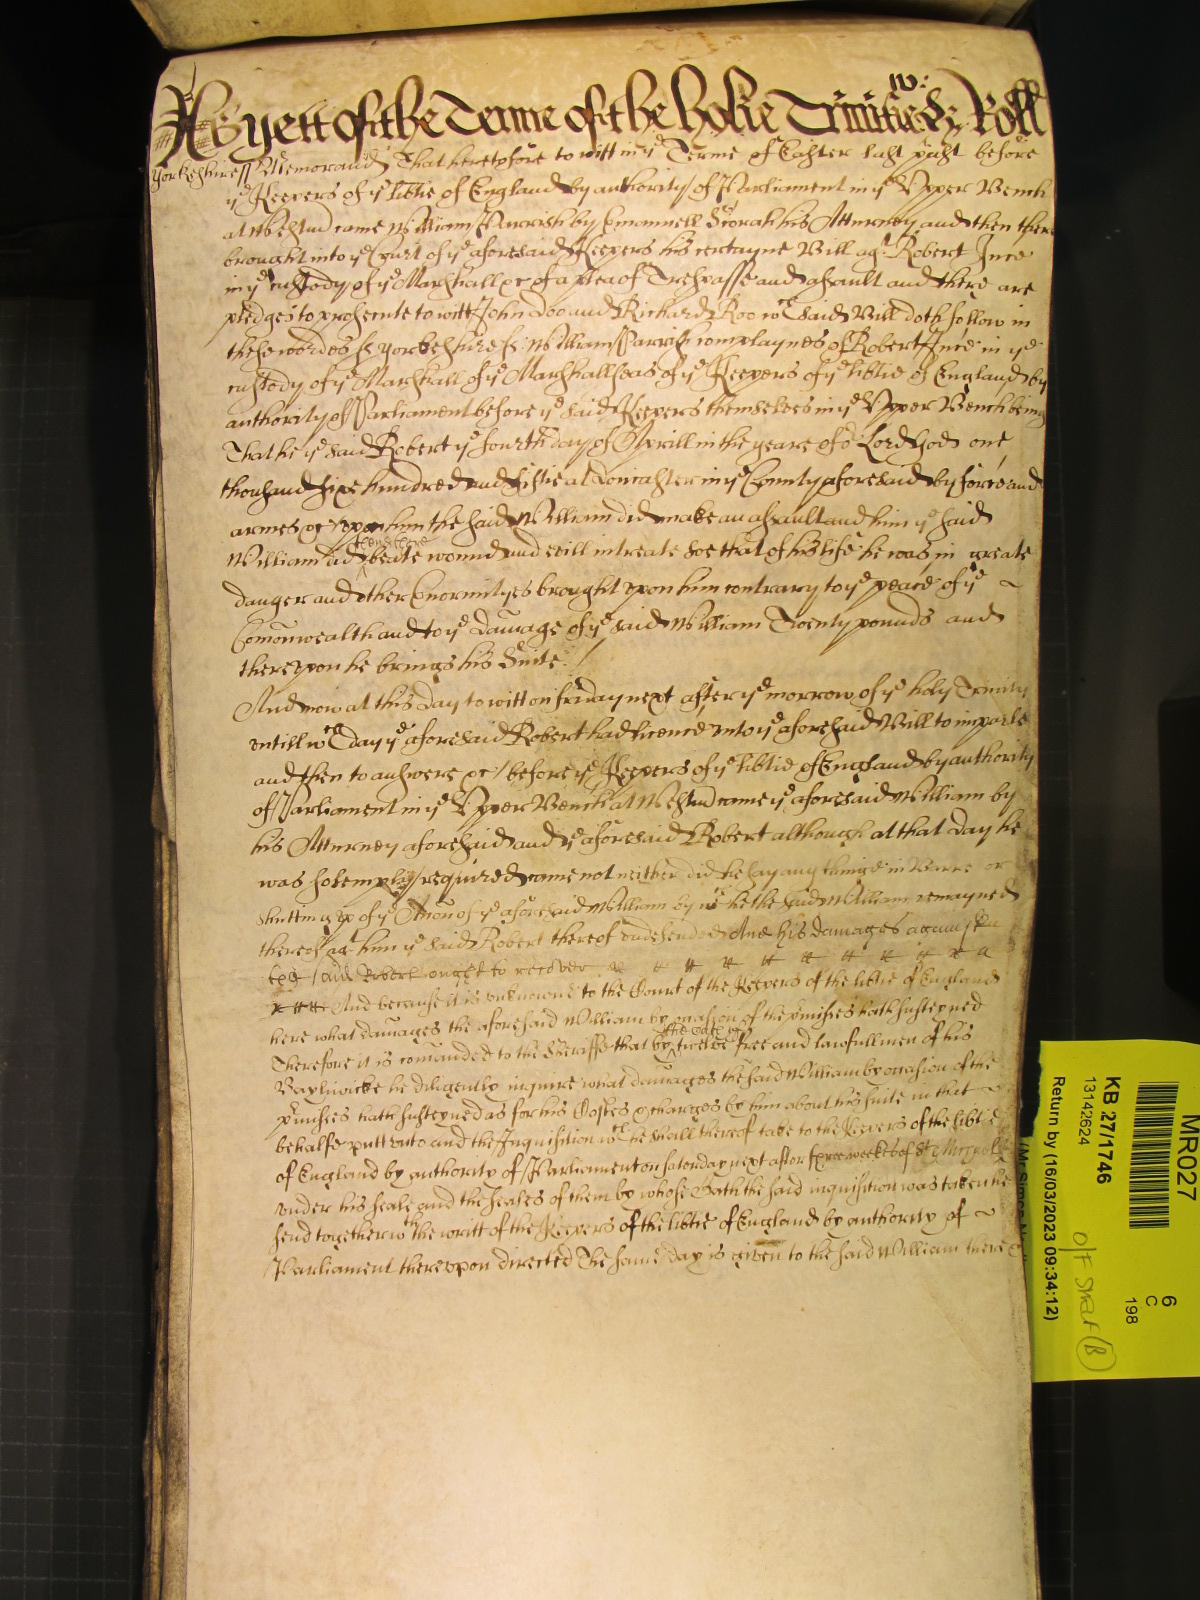 iv:
As yett of the Terme of the holie Trinitie &c Roll
Yorkeshire ss Memorand That heretofore to witt in ye Terme of Easter last past before
ye Keepers of ye libtie of England by authority of Parliament in ye Upper Bench
at Westmr came William Parrish by Emanuell his Atturney and then there
brought into ye Court of ye aforesaid Keepers his certayne Bill agt Robert Ince
in ye custody of ye Marshall &c of a plea of Trespasse and assault and there are
pledges to prosecute to witt John Doo and Richard Roo wch said Bill doth follow in
these wordes ss Yorkeshire ss William Parrish complaynes of Robert Ince in ye
custody of ye Marshall of ye Marshallseas of ye Keepers of ye libtie of England by
authority of Parliament before ye said Keepers themselves in ye Upper Bench being
That he ye said Robert ye fourth day of Aprill in the yeare of or Lord God one
thousand sixe hundred and fiftie at Doncaster in ye County aforesaid by force and
armes &c upon him the said William did make an assault and him ye said
William did then & there beate wound and evill intreate soe that of his life he was in greate
danger and other Enormityes brought upon him contrary to ye peace of ye
Comonwealth and to ye damage of ye said William Twenty pounds and
thereupon he brings his Suite
And now at this day to witt on friday next after ye morrow of ye holy Trinity
untill wch day ye aforesaid Robert had licence unto ye aforesaid Bill to imparle
and then to answere &c before ye Keepers of ye libtie of England by authority
of Parliament in ye Upper Bench at Westmr came ye aforesaid William by
his Atturney aforesaid and ye aforesaid Robert although at that day he
was solemply required came not neither did he say any thinge in Barre or
shutting up of ye Accon of ye aforesaid William by wch he the said William remayned
thereof agt him ye said Robert thereof undefended And his damages against
the said Robert ought to recover
And because it is unknowne to the Court of the Keepers of the libtie of England
here what damages the aforesaid William by occasion of the pmisses hath susteyned
Therefore it is comanded to the Sheriffe that by the oath of twelve free and lawfull men of his
Bayliwicke he diligently inquire what damages the said William by occasion of the
pmisses hath susteyned as for his Costes & charges by him about his suite in that
behalfe putt unto and the Inquisition wch he shall thereof take to the Keepers of the libtie
of England by authority of Parliament on Saturday next after three weekes of St
under his seale and the seales of them by whose Oath the said inquisition was taken he
send together wth the writt of the Keepers of the libtie of England by authority of
Parliament thereupon directed The same day is given to the said William there
MR027
KB 27/1746
13142624
Return by (16/03/2023 09:34:12)
6
C
198